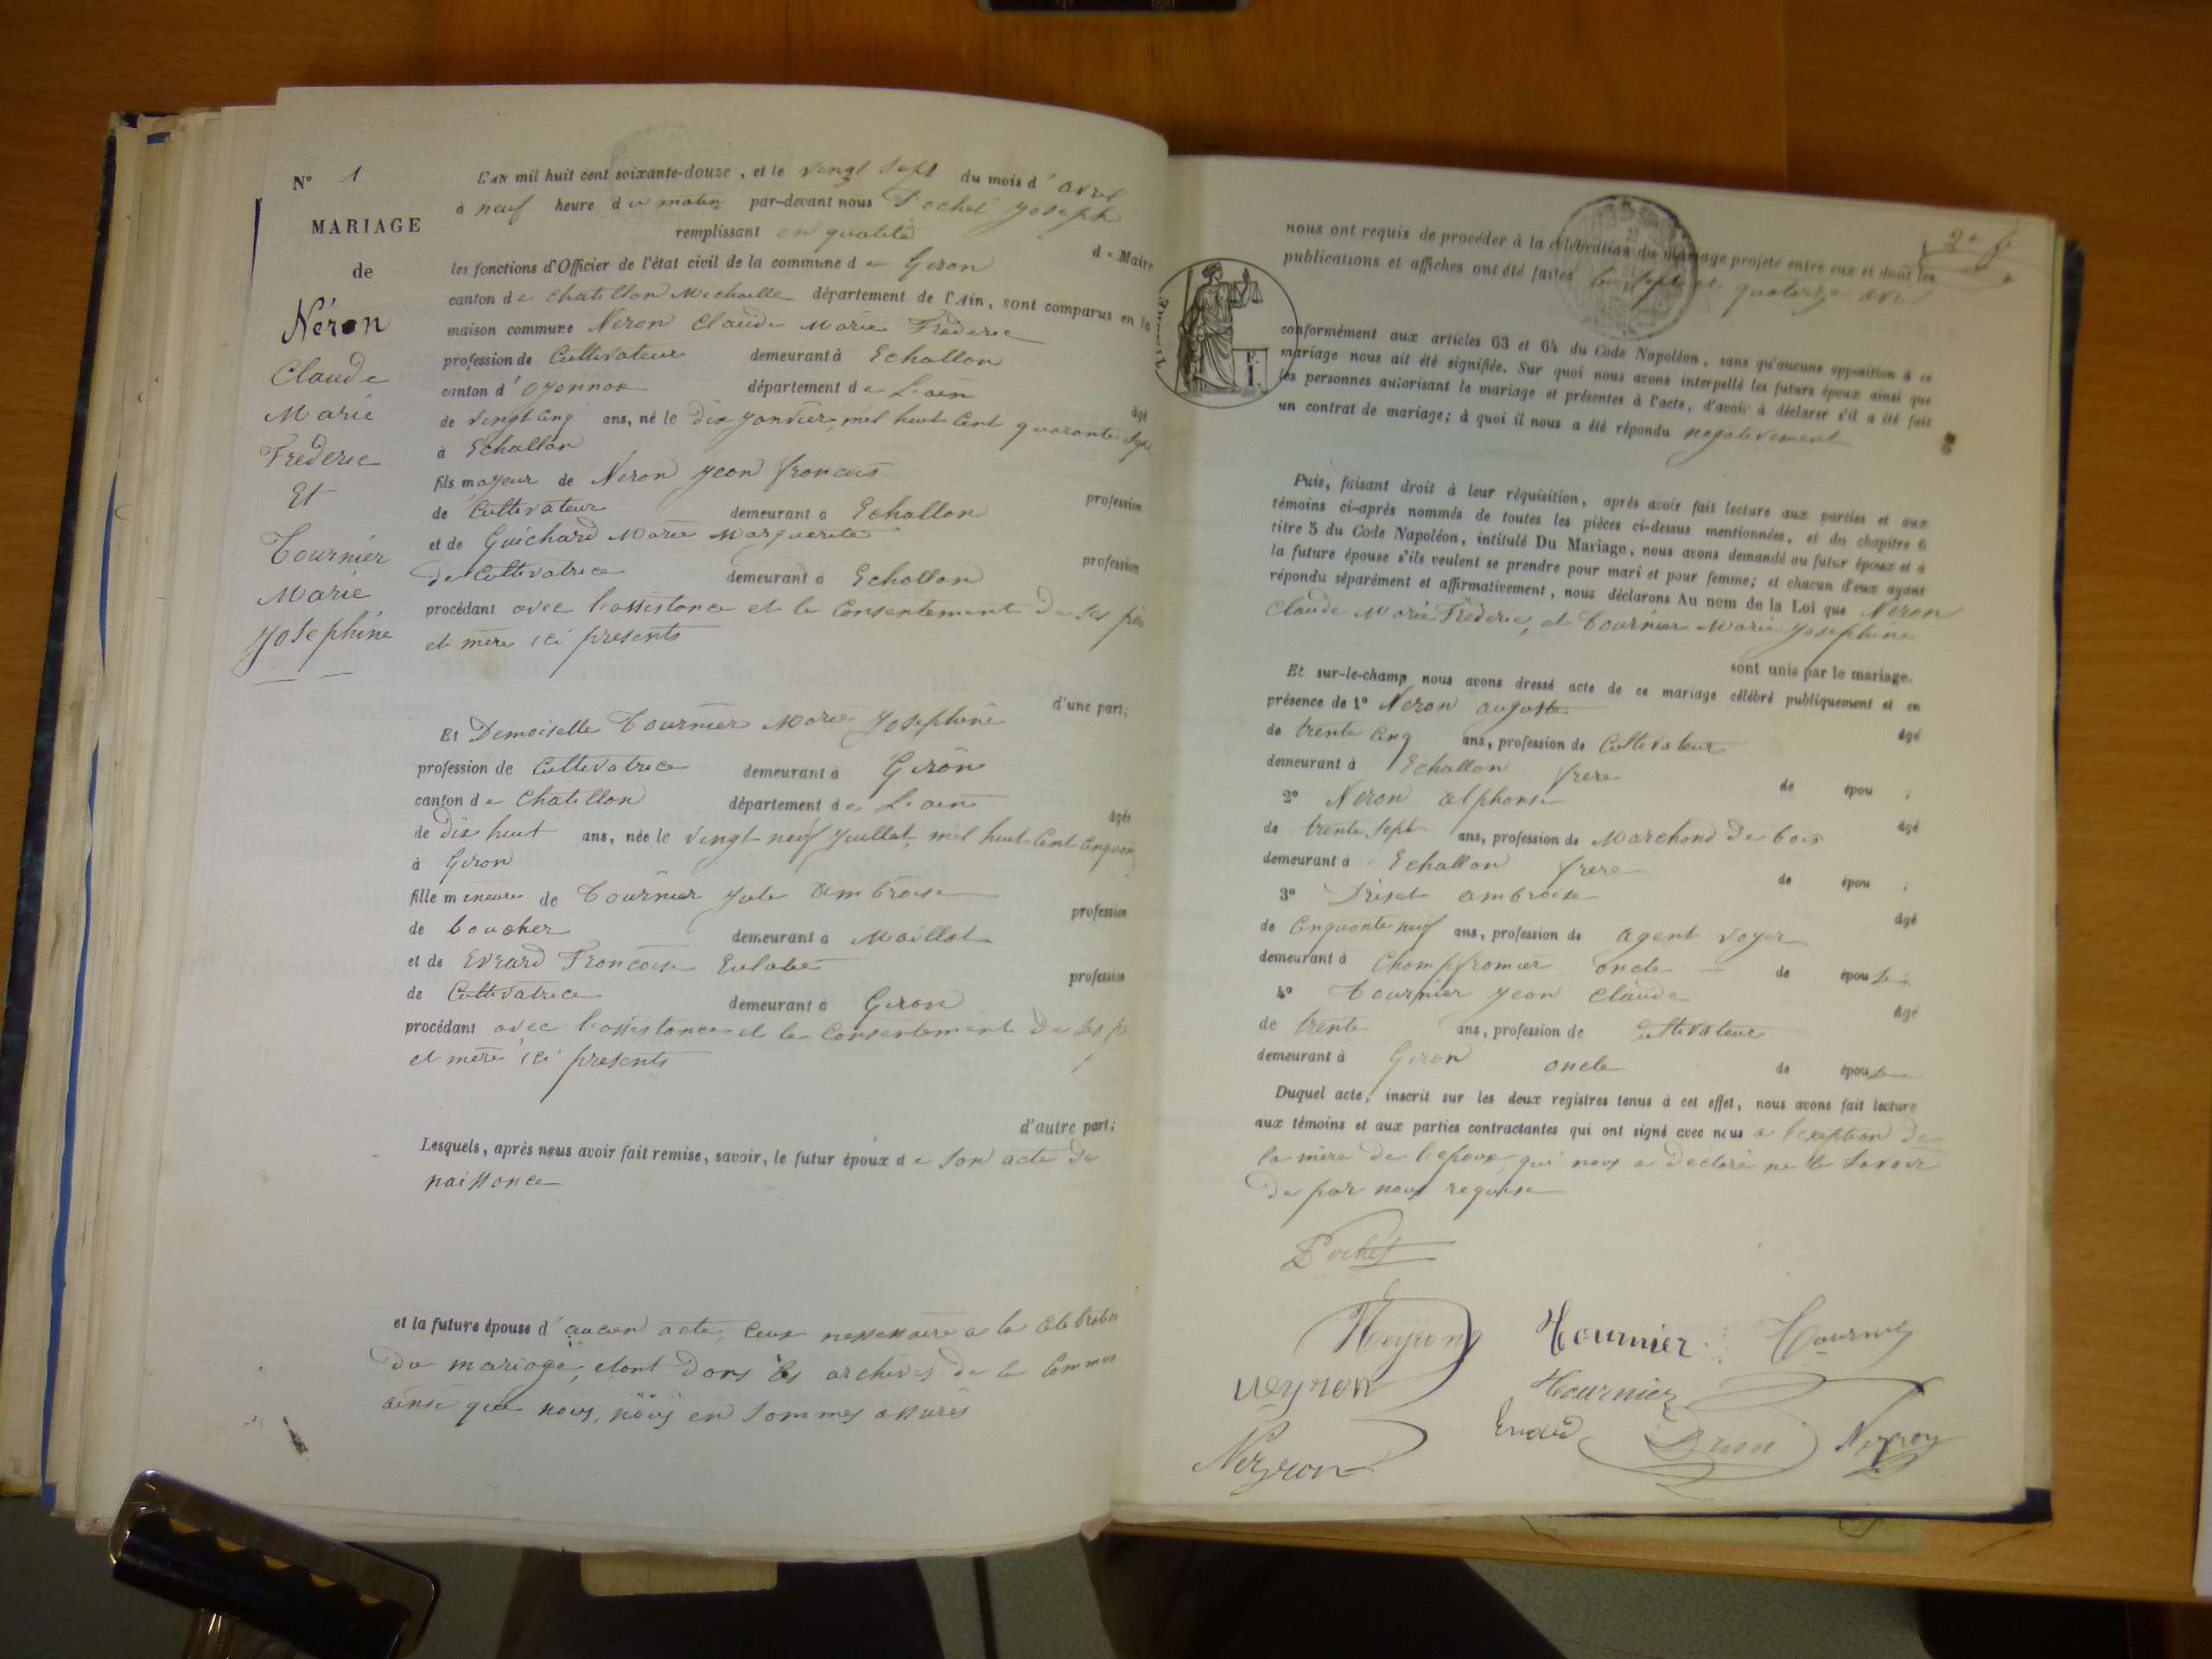 N° 1
MARIAGE
de
Néron
Claude
Marie
Frederic
Et
Tournier
Marie
Josephine
L'AN mil huit cent soixante-douze, et le vingt sept du mois d'avril
à neuf heure du matin par-devant nous Pochet Joseph
remplissant en qualité
de Maire
les fonctions d'Officier de l'état civil de la commune de Giron
canton de Chatillon Michaille département de l'Ain, sont comparus en la
maison commune Neron Claude Marie Frederic
profession de Cultivateur demeurant à Echallon
canton d'Oyonnax département de L'ain
âgé
de vingt cinq ans, né le Dix Janvier, mil huit Cent quarante sept
à Echallon
fils mayeur de Neron Jean francois
profession
de Cultivateur demeurant à Echallon
et de Guichard Marie Marguerite
profession
de Cultivatrice demeurant à Echallon
procédant avec l'assistance et le Consentement De ses père
et mère ici presents
d'une part;
Et Demoiselle Tournier Marie Josephine
profession de Cultivatrice demeurant à Giron
canton de Chatillon département de L'ain
âgée
de Dix huit ans, née le vingt neuf Juillet, mil huit Cent Cinquan
à Giron
fille mineure de Tournier Jule Ambroise
profession
de boucher demeurant à Maillat
et de Evrard Francoise Eulalie
profession
de Cultivatrice demeurant à Giron
procédant avec l'assistance et le Consentement De ses pè
et mère ici presents
d'autre part;
Lesquels, après nous avoir fait remise, savoir, le futur époux de son acte de
naissance
et la future épouse d'aucun acte, Ceux nessessaire a la Celebration
Du mariage, etant Dans les archives de la Commun
ainsi que nous, nous en sommes assurés
2e f
nous ont requis de procéder à la célébration du mariage projeté entre eux et dont les
publications et affiches ont été faites les sept et quatorze avril
conformément aux articles 63 et 64 du Code Napoléon, sans qu'aucune opposition à ce
mariage nous ait été signifiée. Sur quoi nous avons interpellé les futurs époux ainsi que
les personnes autorisant le mariage et présentes à l'acte, d'avoir à déclarer s'il a été fait
un contrat de mariage; à quoi il nous a été répondu negativement
Puis, faisant droit à leur réquisition, après avoir fait lecture aux parties et aux
témoins ci-après nommés de toutes les pièces ci-dessus mentionnées, et du chapitre 6
titre 5 du Code Napoléon, intitulé Du Mariage, nous avons demandé au futur époux et à
la future épouse s'ils veulent se prendre pour mari et pour femme; et chacun d'eux ayant
répondu séparément et affirmativement, nous déclarons Au nom de la Loi que Neron
Claude Marie Frederic, et Tournier Marie Josephine
sont unis par le mariage.
Et sur-le-champ nous avons dressé acte de ce mariage célébré publiquement et en
présence de 1° Neron auguste
âgé
de trente cinq ans, profession de Cultivateur
demeurant à Echallon frere de épou ;
2° Neron alphonse
âgé
de trente sept ans, profession de Marchand de bois
demeurant à Echallon frere de épou ;
3° Driset ambroise
âgé
de Cinquante neuf ans, profession de agent voyer
demeurant à Champfromier oncle de épouse;
4° Tournier Jean Claude
âgé
de trente ans, profession de Cultivateur
demeurant à Giron oncle de épouse
Duquel acte, inscrit sur les deux registres tenus à cet effet, nous avons fait lecture
aux témoins et aux parties contractantes qui ont signé avec nous a l'exeption de
la mère de l'epoux, qui nous a declaré ne le savoir
De par nous requise
Pochet
Neyron Tournier Tournier
Neyron Tournier
Evrard Driset Neyron
Neyron